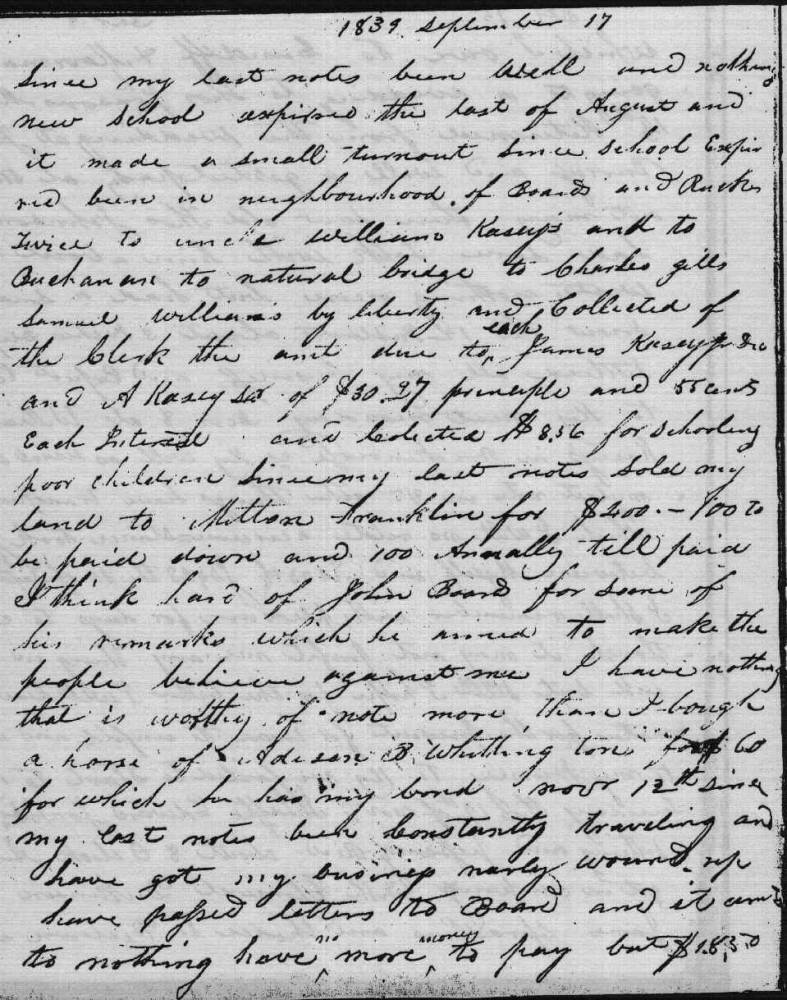 1839 September 17
Since my last notes been well and nothing
new School expired the last of August and
it made a small turnout Since School Expir
red been in neighbourhood of Board and Ruckers
Twice to uncle William Kaseys and to
Buchanan to natural bridge to Charles gills
Samuel Williams by liberty and Collected of
the Clerk the amt due to each James Kasey
and A Kasey of $30.97 principle and 55 cents
Each Interest and Colected $8.56 for Schooling
poor children Since my last notes Sold my
land to Milton Franklin for $400.–100 to
be paid down and 100 Annally till paid
I think hard of John Board for some of
his remarks which he aimed to make the
people believe against me I have nothing
that is worthy of note more than I bough
a horse of Adison B Whitting ton for $60
for which he has my bond novr 12th since
my last notes been Constantly traveling and
have got my business narly wound up
have passed letters to Board and it amts
to nothing have no more money to pay but $18.50